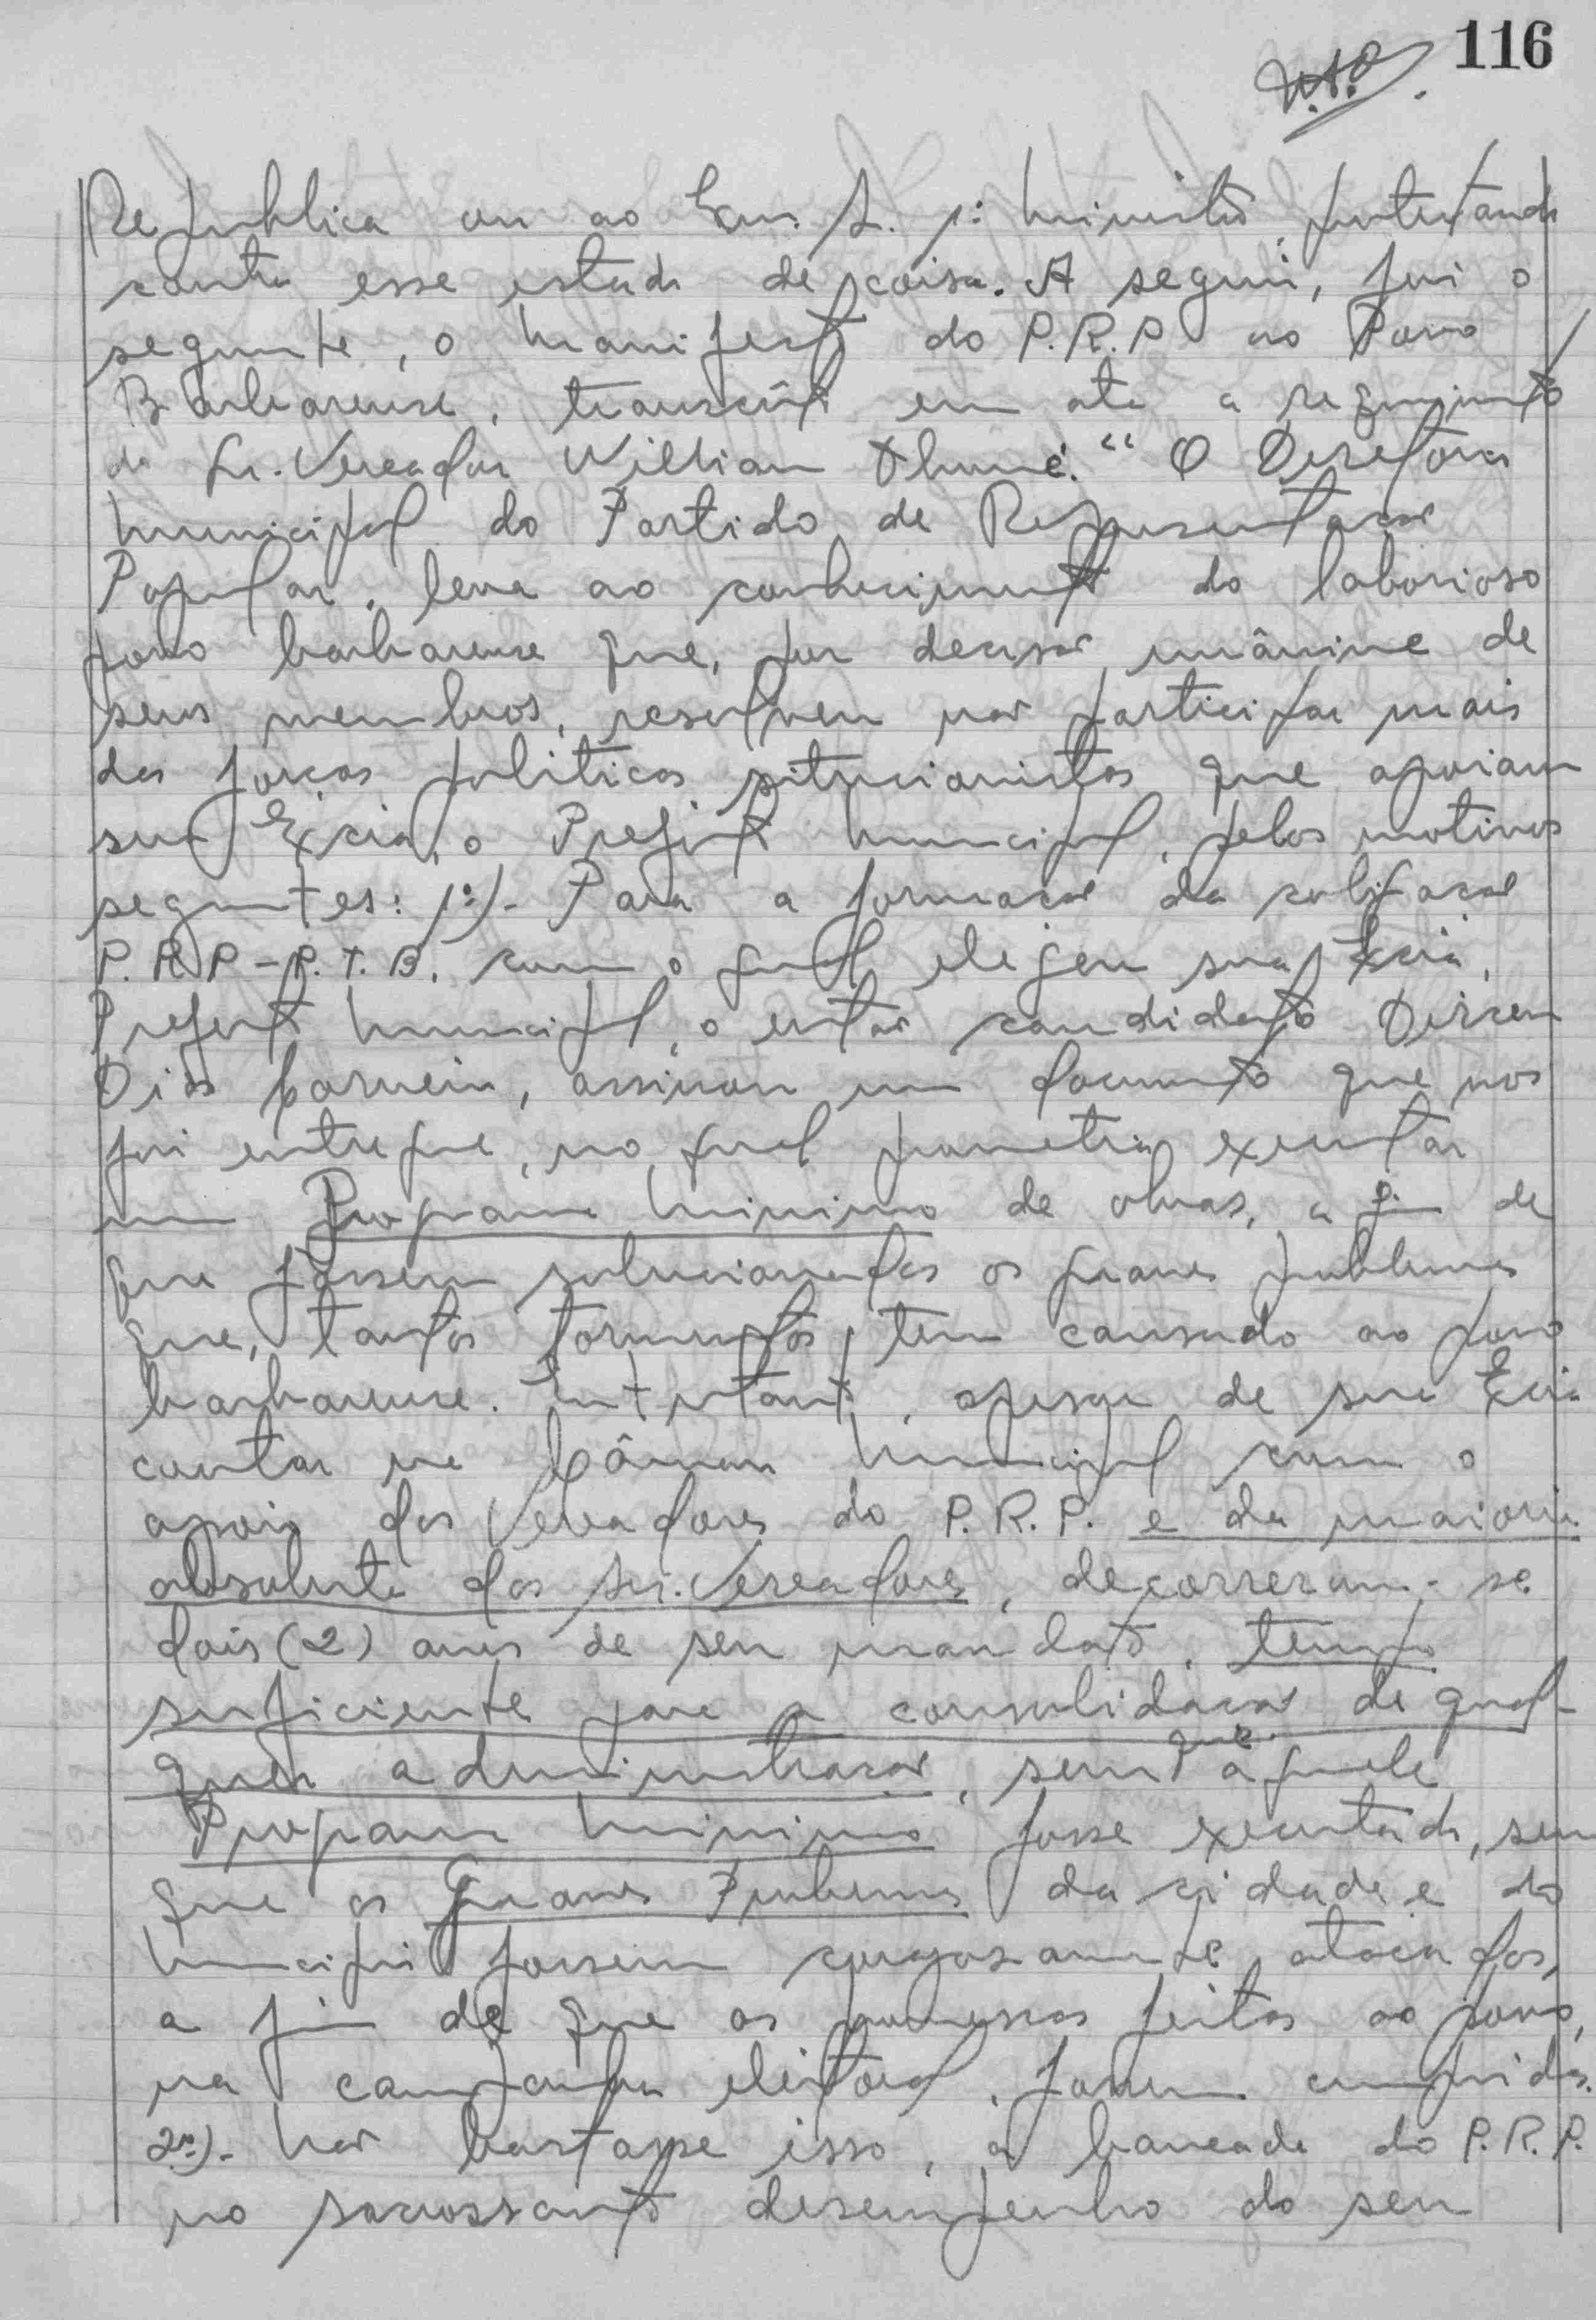 116
República ou ao Exmo. Sr. 1º Ministro, protestando
contra esse estado de coisa. A seguir, foi o
seguinte, o Manifesto do P.R.P ao Povo
Barbarense, transcrito em ata a requerimento
do Sr. Vereador Willian "O Diretorio
Municipal do Partido de Representação
Popular, leva ao conhecimento do laborioso
povo barbarense que, por decisão unânime de
seus membros, resolveu não participar mais
das forças politicas situacionistas que apoiam
sua Excia, o Prefeito Municipal, pelos motivos
seguintes: 1º)- Para a formação da coligação
P.R.P-P.T.B. com o qual elegeu sua Excia,
Prefeito Municipal, o então candidato Dirceu
Dias Carneiro, assinou um documento que nos
foi entregue, no qual prometia executar
um Programa Minimo de obras, a fim de
que fossem solucionados os graves problemas
que, tantos tormentos, tem causado ao povo
barbarense. Entretanto, apesar de sua Excia
contar na Câmara Municipal com o
apoio dos Vereadores do P.R.P. e da maioria
absoluta dos Srs. Vereadores, decorreram-se
dois (2) anos de seu mandato, tempo
suficiente para a consolidação de qual-
quer administração, sem que àquele
Programa Minimo fosse executado, sem
que os Graves Problemas da cidade e do
Municipio fossem corajosamente atacados,
a fim de que as promessas feitas ao povo,
na campanha eleitoral, fossem cumpridas.
2º)- Não bastasse isso, a bancada do P.R.P.
no sacrossanto desempenho do seu